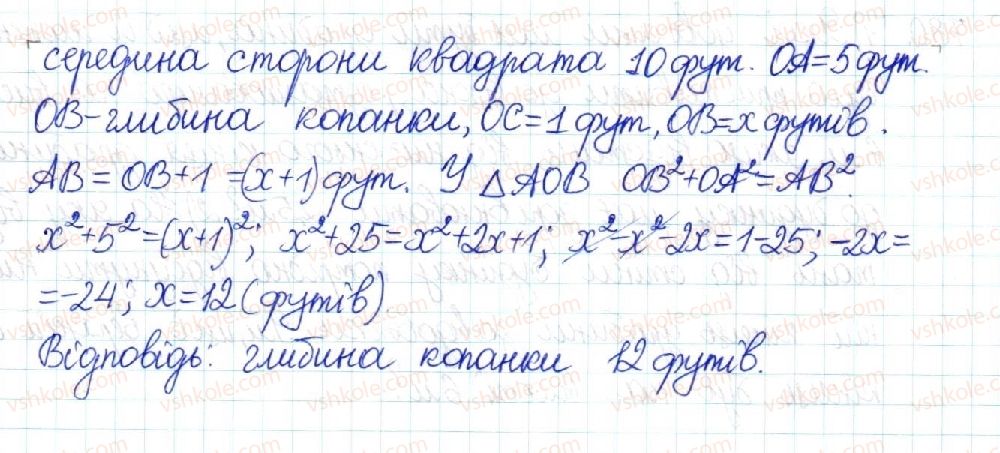 середина сторони квадрата 10 фут. OA=5 фут.
OB-глибина копанки, OC=1 фут, OB=x футів.
AB=OB+1=(x+1) фут. У △AOB OB²+OA²=AB².
x²+5²=(x+1)²; x²+25=x²+2x+1; x²-x²-2x=1-25; -2x=
=-24; x=12 (футів).
Відповідь: глибина копанки 12 футів.